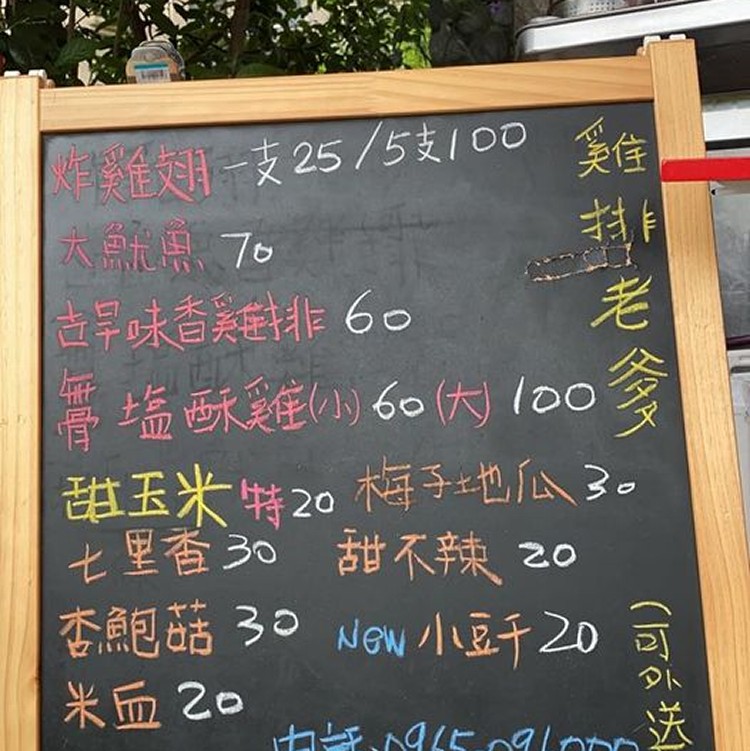 炸雞翅 一支25/5支100
大魷魚 70
古早味香雞排 60
無骨 塩酥雞(小)60(大)100
甜玉米 特20 梅子地瓜 30
七里香 30 甜不辣 20
杏鮑菇 30 NEW 小豆干 20
米血 20
雞排老爹
(可外送
電話:0965-091000